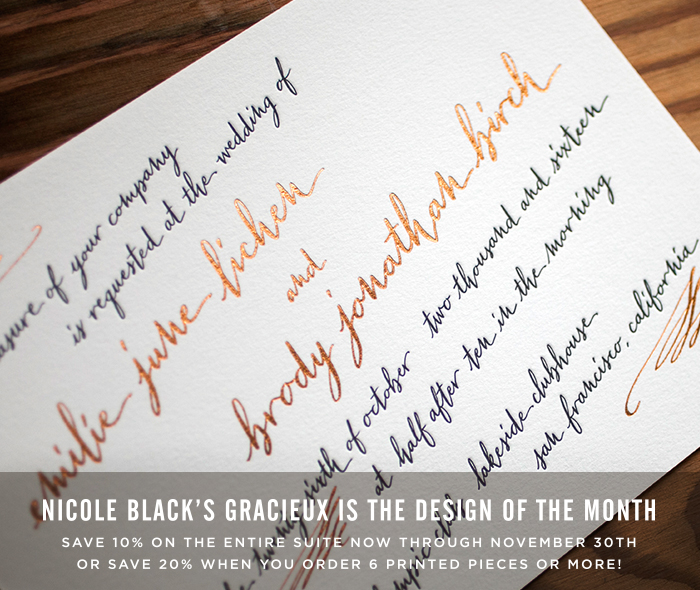 asure of your company
is requested at the wedding of
emilie june lichen
and
brody jonathan birch
twenty sixth of october two thousand and sixteen
at half after ten in the morning
lakeside clubhouse
san francisco, california
NICOLE BLACK'S GRACIEUX IS THE DESIGN OF THE MONTH
SAVE 10% ON THE ENTIRE SUITE NOW THROUGH NOVEMBER 30TH
OR SAVE 20% WHEN YOU ORDER 6 PRINTED PIECES OR MORE!